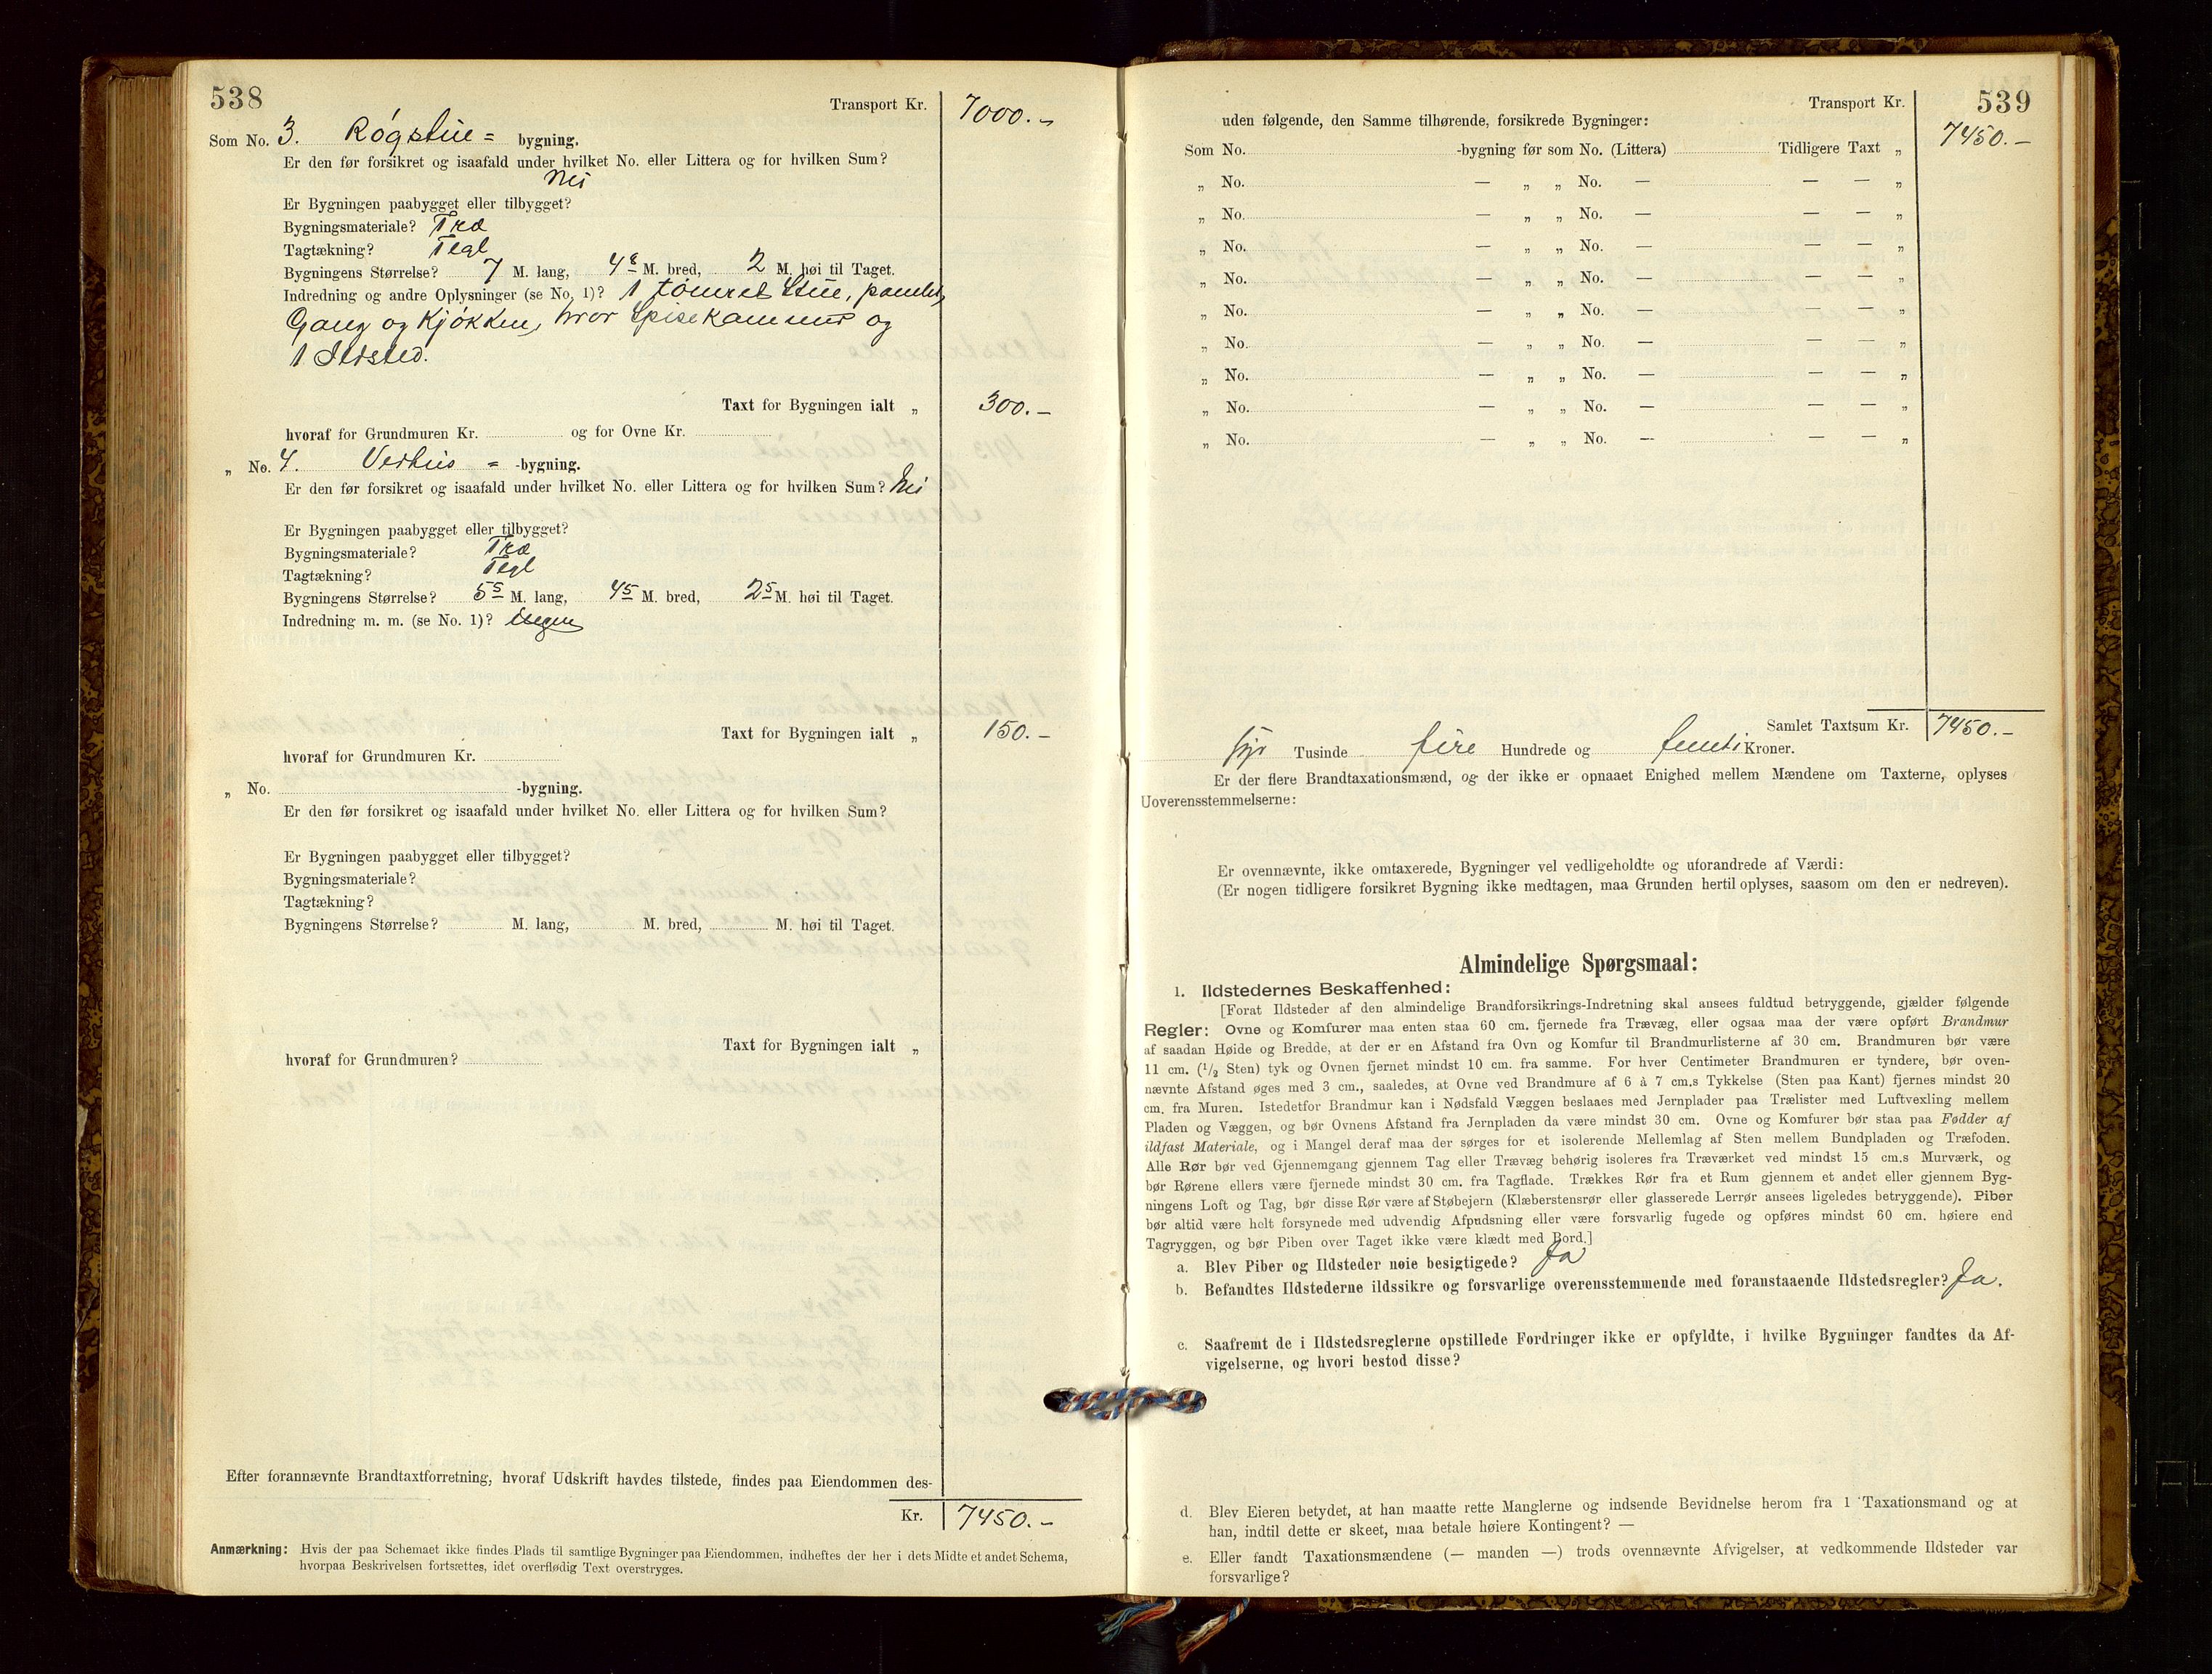 538
Transport Kr. 7000.-
Som No. 3. Røgstue= bygning.
Er den før forsikret og isaafald under hvilket No. eller Littera og for hvilken Sum?
Nei
Er Bygningen paabygget eller tilbygget?
Bygningsmateriale? Træ
Tagtækning? Tegl
Bygningens Størrelse? 7 M. lang, 4 8 M. bred, 2 M. høi til Taget.
Indredning og andre Oplysninger (se No. 1)? 1 tømret Stue, panelet
Gang og Kjøkken, hvor Spisekammer og
1 Ildsted.
Taxt for Bygningen ialt „ 300.-
hvoraf for Grundmuren Kr. og for Ovne Kr.
„ No. 4. Vedhus = -bygning.
Er den før forsikret og isaafald under hvilket No. eller Littera og for hvilken Sum? Nei
Er Bygningen paabygget eller tilbygget?
Bygningsmateriale? Træ
Tagtækning? Tegl
Bygningens Størrelse? 5 5 M. lang, 4 5 M. bred, 2 5 M. høi til Taget.
Indredning m. m. (se No. 1)? Ingen
Taxt for Bygningen ialt „ 150.-
hvoraf for Grundmuren Kr.
„ No. -bygning.
Er den før forsikret og isaafald under hvilket No. eller Littera og for hvilken Sum?
Er Bygningen paabygget eller tilbygget?
Bygningsmateriale?
Tagtækning?
Bygningens Størrelse? M. lang, M. bred, M. høi til Taget.
Taxt for Bygningen ialt „
hvoraf for Grundmuren?
Efter forannævnte Brandtaxtforretning, hvoraf Udskrift havdes tilstede, findes paa Eiendommen des-
Kr. 7450.-
Anmærkning: Hvis der paa Schemaet ikke findes Plads til samtlige Bygninger paa Eiendommen, indheftes der her i dets Midte et andet Schema,
hvorpaa Beskrivelsen fortsættes, idet overflødig Text overstryges.
539
Transport Kr.
uden følgende, den Samme tilhørende, forsikrede Bygninger: 7450.-
Som No. -bygning før som No. (Littera) Tidligere Taxt „
„ No. — „ „ No. — — — „
„ No. — „ „ No. — — — „
„ No. — „ „ No. — — — „
„ No. — „ „ No. — — — „
„ No. — „ „ No. — — — „
„ No. — „ „ No. — — — „
„ No. — „ „ No. — — — „
„ No. — „ „ No. — — — „
„ No. — „ „ No. — — — „
Samlet Taxtsum Kr. 7450.-
Syv Tusinde fire Hundrede og femti Kroner.
Er der flere Brandtaxationsmænd, og der ikke er opnaaet Enighed mellem Mændene om Taxterne, oplyses
Uoverensstemmelserne:
Er ovennævnte, ikke omtaxerede, Bygninger vel vedligeholdte og uforandrede af Værdi:
(Er nogen tidligere forsikret Bygning ikke medtagen, maa Grunden hertil oplyses, saasom om den er nedreven).
Almindelige Spørgsmaal:
1. Ildstedernes Beskaffenhed:
[Forat Ildsteder af den almindelige Brandforsikrings-Indretning skal ansees fuldtud betryggende, gjælder følgende
Regler: Ovne og Komfurer maa enten staa 60 cm. fjernede fra Trævæg, eller ogsaa maa der være opført Brandmur
af saadan Høide og Bredde, at der er en Afstand fra Ovn og Komfur til Brandmurlisterne af 30 cm. Brandmuren bør være
11 cm. (1/2 Sten) tyk og Ovnen fjernet mindst 10 cm. fra samme. For hver Centimeter Brandmuren er tyndere, bør oven-
nævnte Afstand øges med 3 cm., saaledes, at Ovne ved Brandmure af 6 à 7 cm.s Tykkelse (Sten paa Kant) fjernes mindst 20
cm. fra Muren. Istedetfor Brandmur kan i Nødsfald Væggen beslaaes med Jernplader paa Trælister med Luftvexling mellem
Pladen og Væggen, og bør Ovnens Afstand fra Jernpladen da være mindst 30 cm. Ovne og Komfurer bør staa paa Fødder af
ildfast Materiale, og i Mangel deraf maa der sørges for et isolerende Mellemlag af Sten mellem Bundpladen og Træfoden.
Alle Rør bør ved Gjennemgang gjennem Tag eller Trævæg behørig isoleres fra Træværket ved mindst 15 cm.s Murværk, og
bør Rørene ellers være fjernede mindst 30 cm. fra Tagflade. Trækkes Rør fra et Rum gjennem et andet eller gjennem Byg-
ningens Loft og Tag, bør disse Rør være af Støbejern (Klæberstensrør eller glasserede Lerrør ansees ligeledes betryggende). Piber
bør altid være helt forsynede med udvendig Afpudsning eller være forsvarlig fugede og opføres mindst 60 cm. høiere end
Tagryggen, og bør Piben over Taget ikke være klædt med Bord.]
a. Blev Piber og Ildsteder nøie besigtigede? Ja
b. Befandtes Ildstederne ildssikre og forsvarlige overensstemmende med foranstaaende Ildstedsregler? Ja.
c. Saafremt de i Ildstedsreglerne opstillede Fordringer ikke er opfyldte, i hvilke Bygninger fandtes da Af-
vigelserne, og hvori bestod disse?
d. Blev Eieren betydet, at han maatte rette Manglerne og indsende Bevidnelse herom fra 1 Taxationsmand og at
han, indtil dette er skeet, maa betale høiere Kontingent? —
e. Eller fandt Taxationsmændene (— manden —) trods ovennævnte Afvigelser, at vedkommende Ildsteder var
forsvarlige?